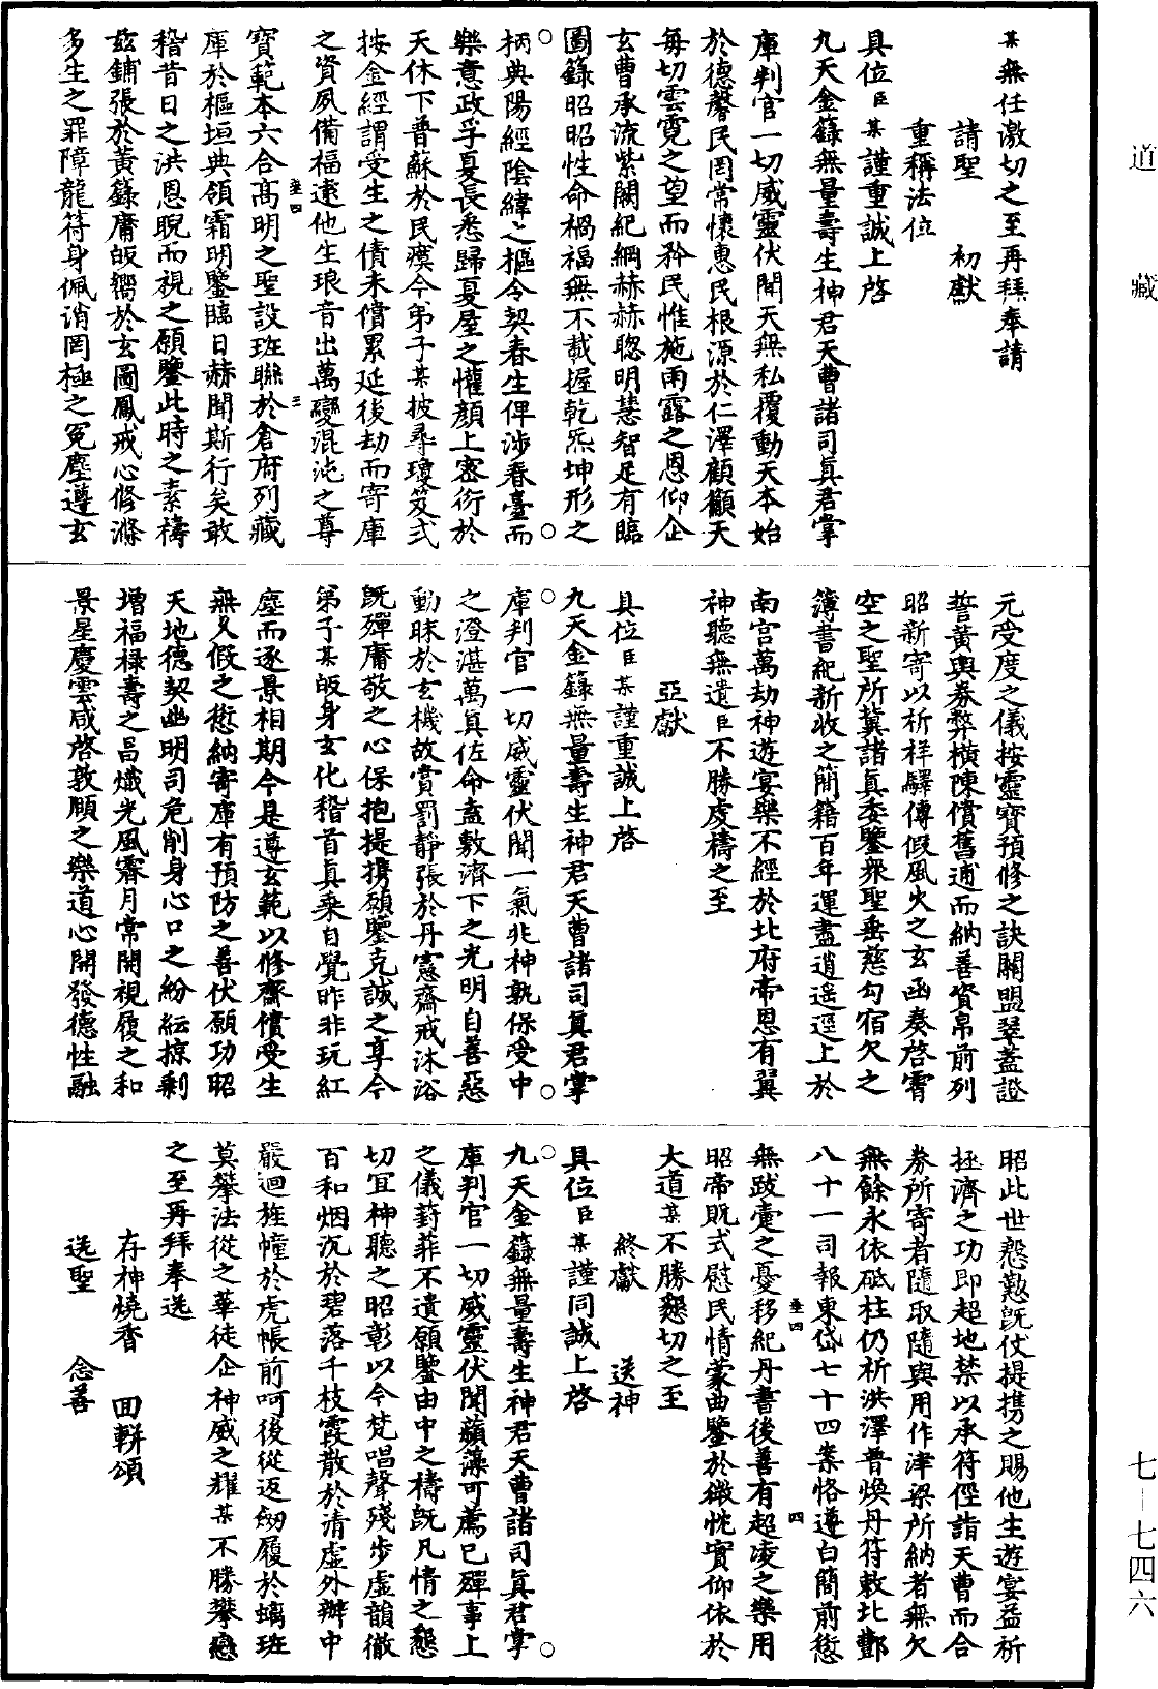 道藏
某無任激切之至再拜奉請
請聖　初獻
重稱法位
具位臣某謹重誠上啓
九天金籙無量壽生神君天曹諸司眞君掌
庫判官一切威靈伏聞天無私覆動天本始
於德馨民罔常懷惠民根源於仁澤顧籲天
每切雲霓之望而矜民惟施雨露之恩仰企
玄曹承流紫闕紀綱赫赫聰明慧智足有臨
圖籙昭昭性命禍福無不載握乾炁坤形之
柄典陽經陰緯之樞令契春生俾涉春臺而
樂意政孚夏長悉歸夏屋之懽顏上密衍於
天休下普蘇於民瘼今弟子某披尋瓊笈式
按金經謂受生之債未償累延後劫而寄庫
之資夙備福逮他生琅音出萬變混沌之尊
寶範本六合高明之聖設班聯於倉府列藏
庫於樞垣典領霜明鑒臨日赫聞斯行矣敢
稽昔日之洪恩睨而視之願鑒此時之素禱
兹鋪張於黃籙庸皈嚮於玄圖鳳戒心修滌
多生之罪障龍符身佩消罔極之冤塵遵玄
元受度之儀按靈寶預修之訣關盟翠蓋證
誓黃輿券弊橫陳償舊逋而納善資帛前列
昭新寄以祈祥驛傳假風火之玄函奏啓霄
空之聖所冀諸眞委鑒衆聖垂慈勾宿欠之
簿書紀新收之簡籍百年運盡逍遥逕上於
南宮萬劫神遊宴樂不經於北府帝恩有翼
神聽無遺臣不勝虔禱之至
亞獻
具位臣某謹重誠上啓
九天金籙無量壽生神君天曹諸司眞君掌
庫判官一切威靈伏聞一氣兆神孰保受中
之澄湛萬真佐命盍敷濟下之光明自善惡
動昧於玄機故賞罰靜張於丹憲齋戒沐浴
既殫庸敬之心保抱提攜願鑒克誠之享今
弟子某皈身玄化稽首眞乘自覺昨非玩紅
塵而逐景相期今是遵玄範以修齋償受生
無久假之愆納寄庫有預防之善伏願功昭
天地德契幽明司危削身心口之紛紜掠剩
增福祿壽之昌熾光風霽月常開視履之和
景星慶雲咸啓敦願之樂道心開發德性融
昭此世慇懃既仗提攜之賜他生遊宴益祈
拯濟之功即超地禁以承符俓詣天曹而合
券所寄者隨取隨與用作津梁所納者無欠
無餘永依砥柱仍祈洪澤普煥丹符敕北酆
八十一司報東岱七十四案恪遵白簡前愆
無跋疐之憂移紀丹書後善有超凌之樂用
昭帝貺式慰民情蒙曲鑒於微忱實仰依於
大道某不勝懇切之至
終獻　送神
具位臣某謹同誠上啓
九天金籙無量壽生神君天曹諸司眞君掌
庫判官一切威靈伏聞蘋藻可薦已殫事上
之儀葑菲不遺願鑒由中之禱既凡情之懇
切冝神聽之昭彰以今梵唱聲殘步虛韻徹
百和烟沉於碧落千枝霞散於清虛外辦中
嚴迴旌幢於虎帳前呵後從返劒履於螭班
莫攀法從之華徒企神威之耀某不勝攀戀
之至再拜奉送
存神燒香　回軿頌
送聖　念善
七—七四六